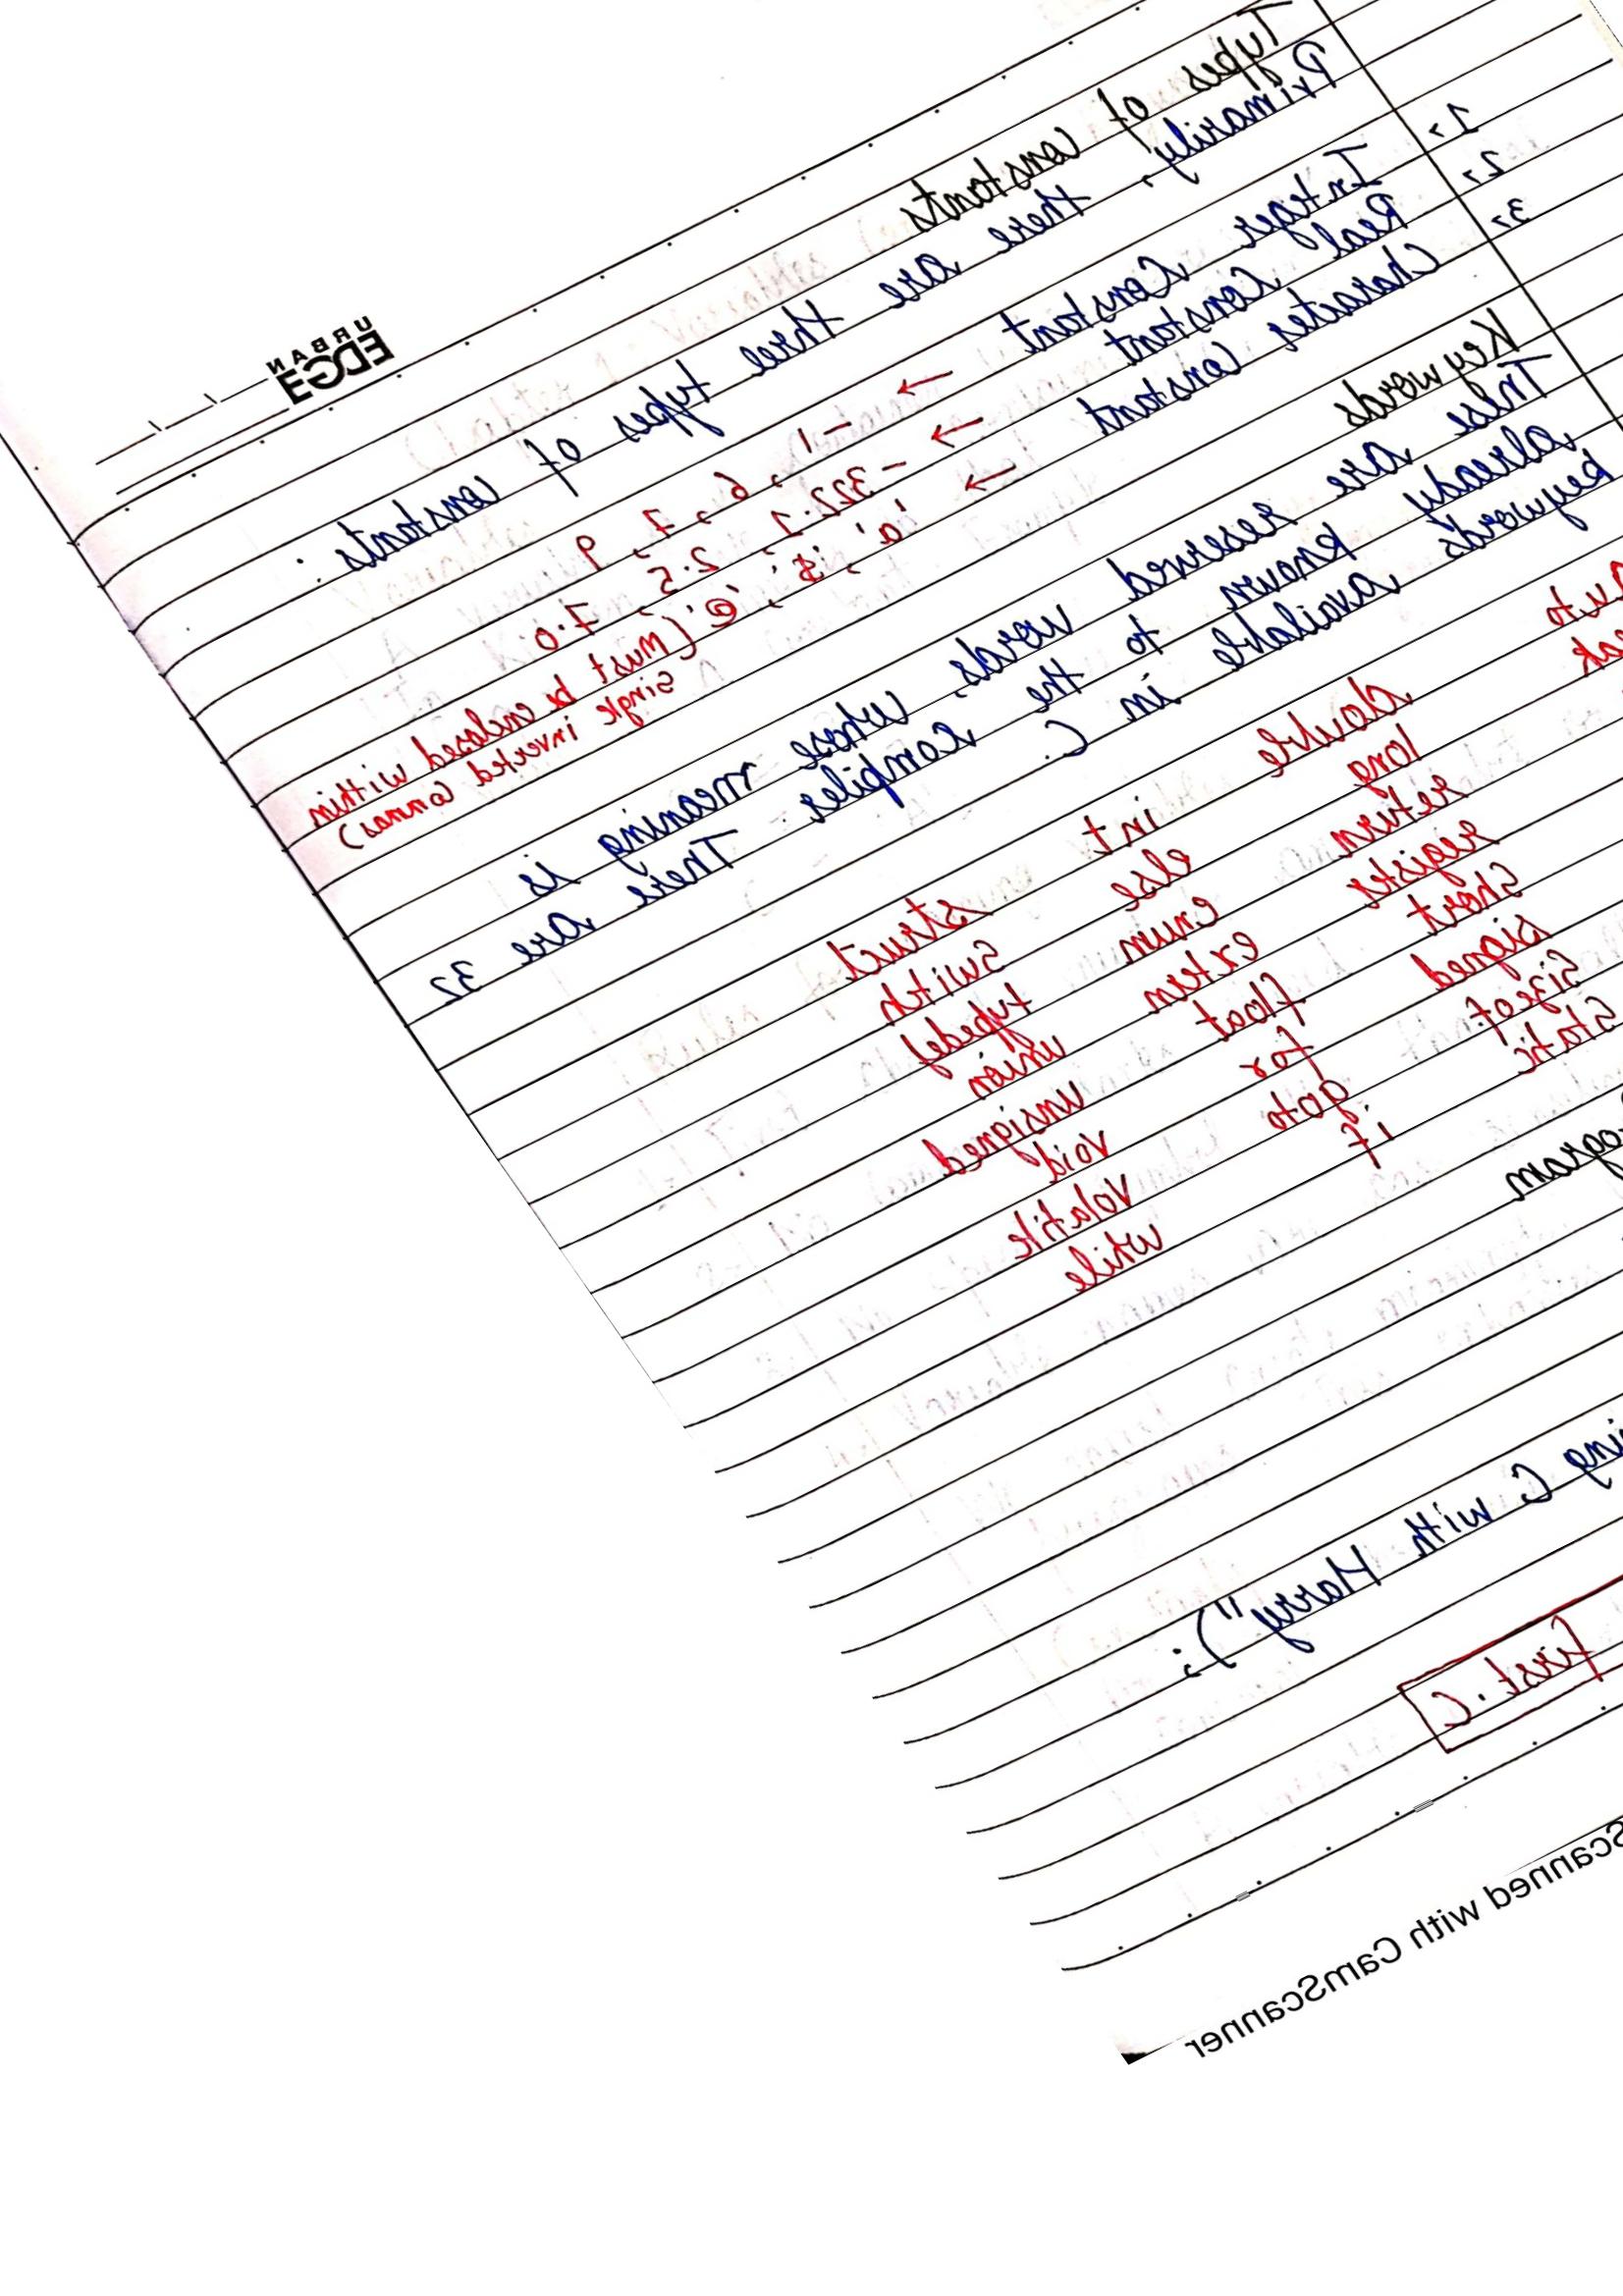 URBAN
EDGE
Types of constants
Primarily, there are three types of constants :
1> Integer Constant → -1, 6, 7, 9
2> Real Constant → -322.1, 2.5, 7.0
3> Character constant → 'a', '$', '@' (Must be enclosed within
single inverted commas)
Keywords
These are reserved words, whose meaning is
already known to the compiler. There are 32
keywords available in C.
double int struct
long else switch
return enum typedef
register extern union
short float unsigned
signed for void
sizeof goto volatile
static if while
C with Harry");
first.c
Scanned with CamScanner